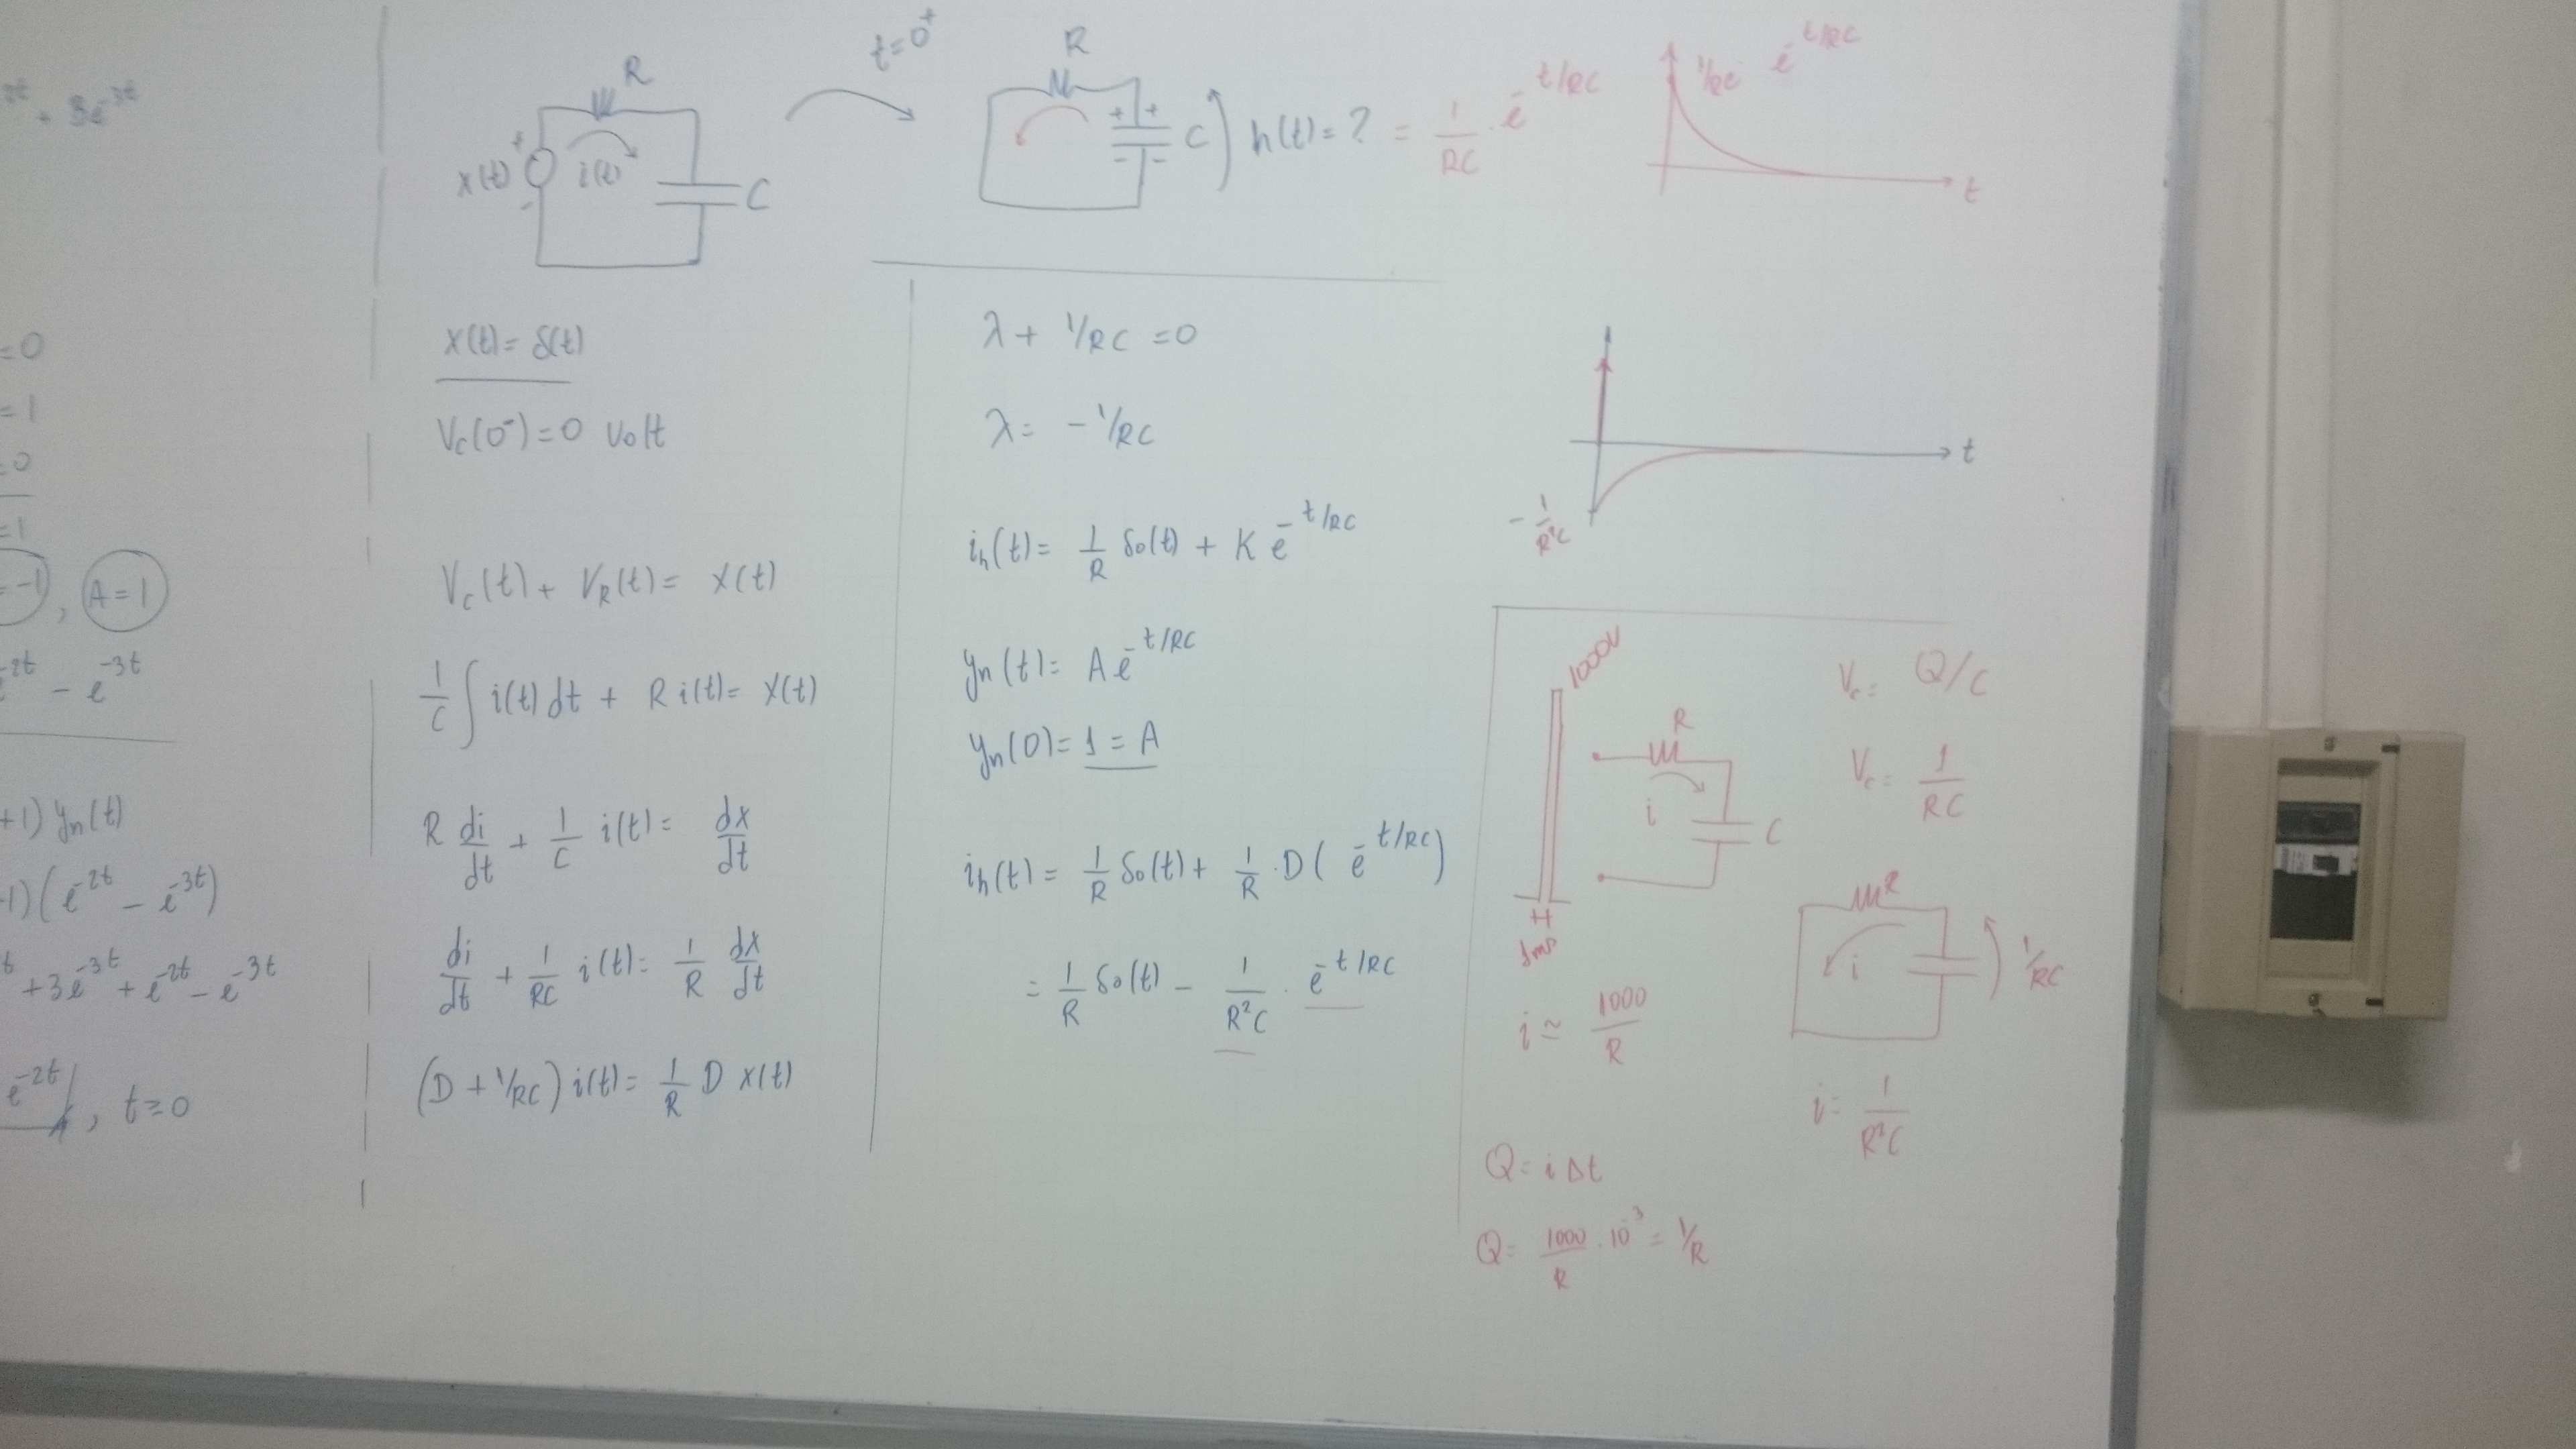 + 3e^{-3t}
=0
=1
=0
=1
=-1 , A=1
e^{-2t} - e^{-3t}
+1) yn(t)
1)(e^{-2t} - e^{-3t})
+3e^{-3t} + e^{-2t} - e^{-3t}
e^{-2t} , t≥0
R
x(t) + - i(t) C
t=0⁺
R
+ + - - C h(t)=? = 1/RC · e^{-t/RC}
1/RC e^{-t/RC}
t
x(t)= δ(t)
Vc(0⁻)=0 volt
Vc(t) + VR(t)= x(t)
1/C ∫ i(t) dt + R i(t)= x(t)
R di/dt + 1/C i(t)= dx/dt
di/dt + 1/RC i(t)= 1/R dx/dt
(D + 1/RC) i(t)= 1/R D x(t)
λ + 1/RC =0
λ= -1/RC
ih(t)= 1/R δo(t) + K e^{-t/RC}
yn(t)= A e^{-t/RC}
yn(0)= 1 = A
ih(t)= 1/R δo(t) + 1/R · D( e^{-t/RC} )
= 1/R δo(t) - 1/R²C · e^{-t/RC}
t
- 1/R²C
1000V
1ms
R
i C
i ≃ 1000/R
Q= i Δt
Q= 1000/R · 10⁻³ = 1/R
Vc= Q/C
Vc= 1/RC
R
i 1/RC
i= 1/R²C